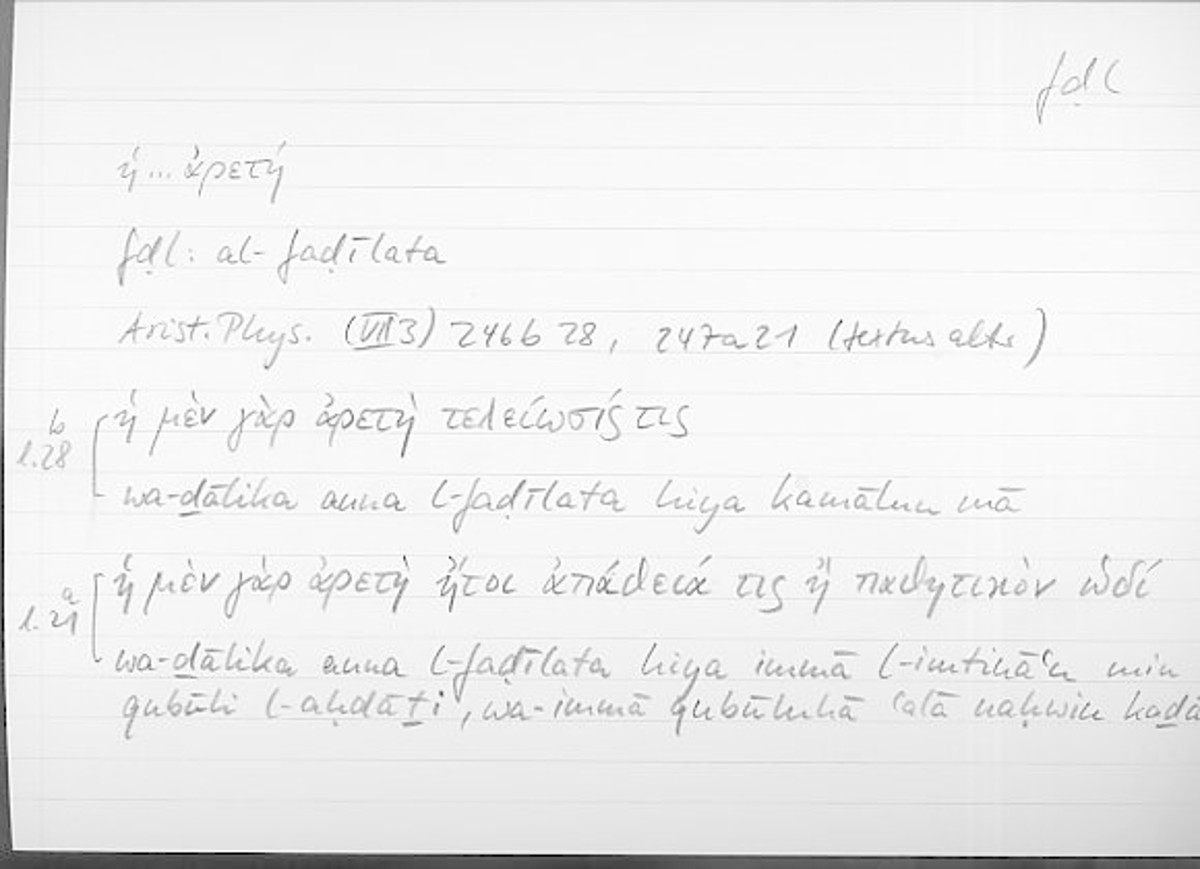 fḍl
ἡ ... ἀρετή
fḍl: al-faḍīlata
Arist. Phys. (VII 3) 246b 28, 247a 21 (textus alter)
b
l. 28
ἡ μὲν γὰρ ἀρετὴ τελείωσίς τις
wa-ḏālika anna l-faḍīlata hiya kamālun mā
a
l. 21
ἡ μὲν γὰρ ἀρετὴ ἤτοι ἀπάθειά τις ἢ παθητικὸν ὡδί
wa-ḏālika anna l-faḍīlata hiya immā l-imtināʿu min
qubūli l-aḥdāṯi, wa-immā qubūluhā ʿalā naḥwin kaḏā